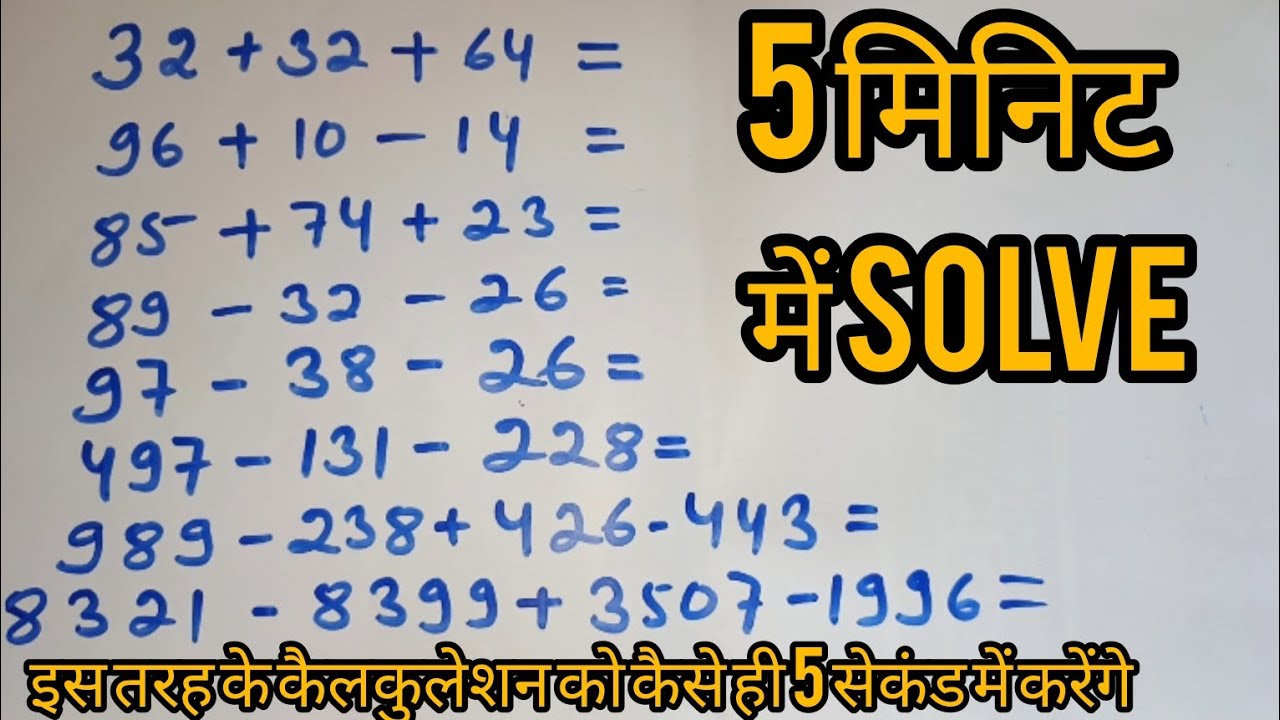 32 + 32 + 64 =
96 + 10 - 14 =
85 + 74 + 23 =
89 - 32 - 26 =
97 - 38 - 26 =
497 - 131 - 228 =
989 - 238 + 426 - 443 =
8321 - 8399 + 3507 - 1996 =
5 मिनिट
में SOLVE
इस तरह के कैलकुलेशन को कैसे ही 5 सेकंड में करेंगे